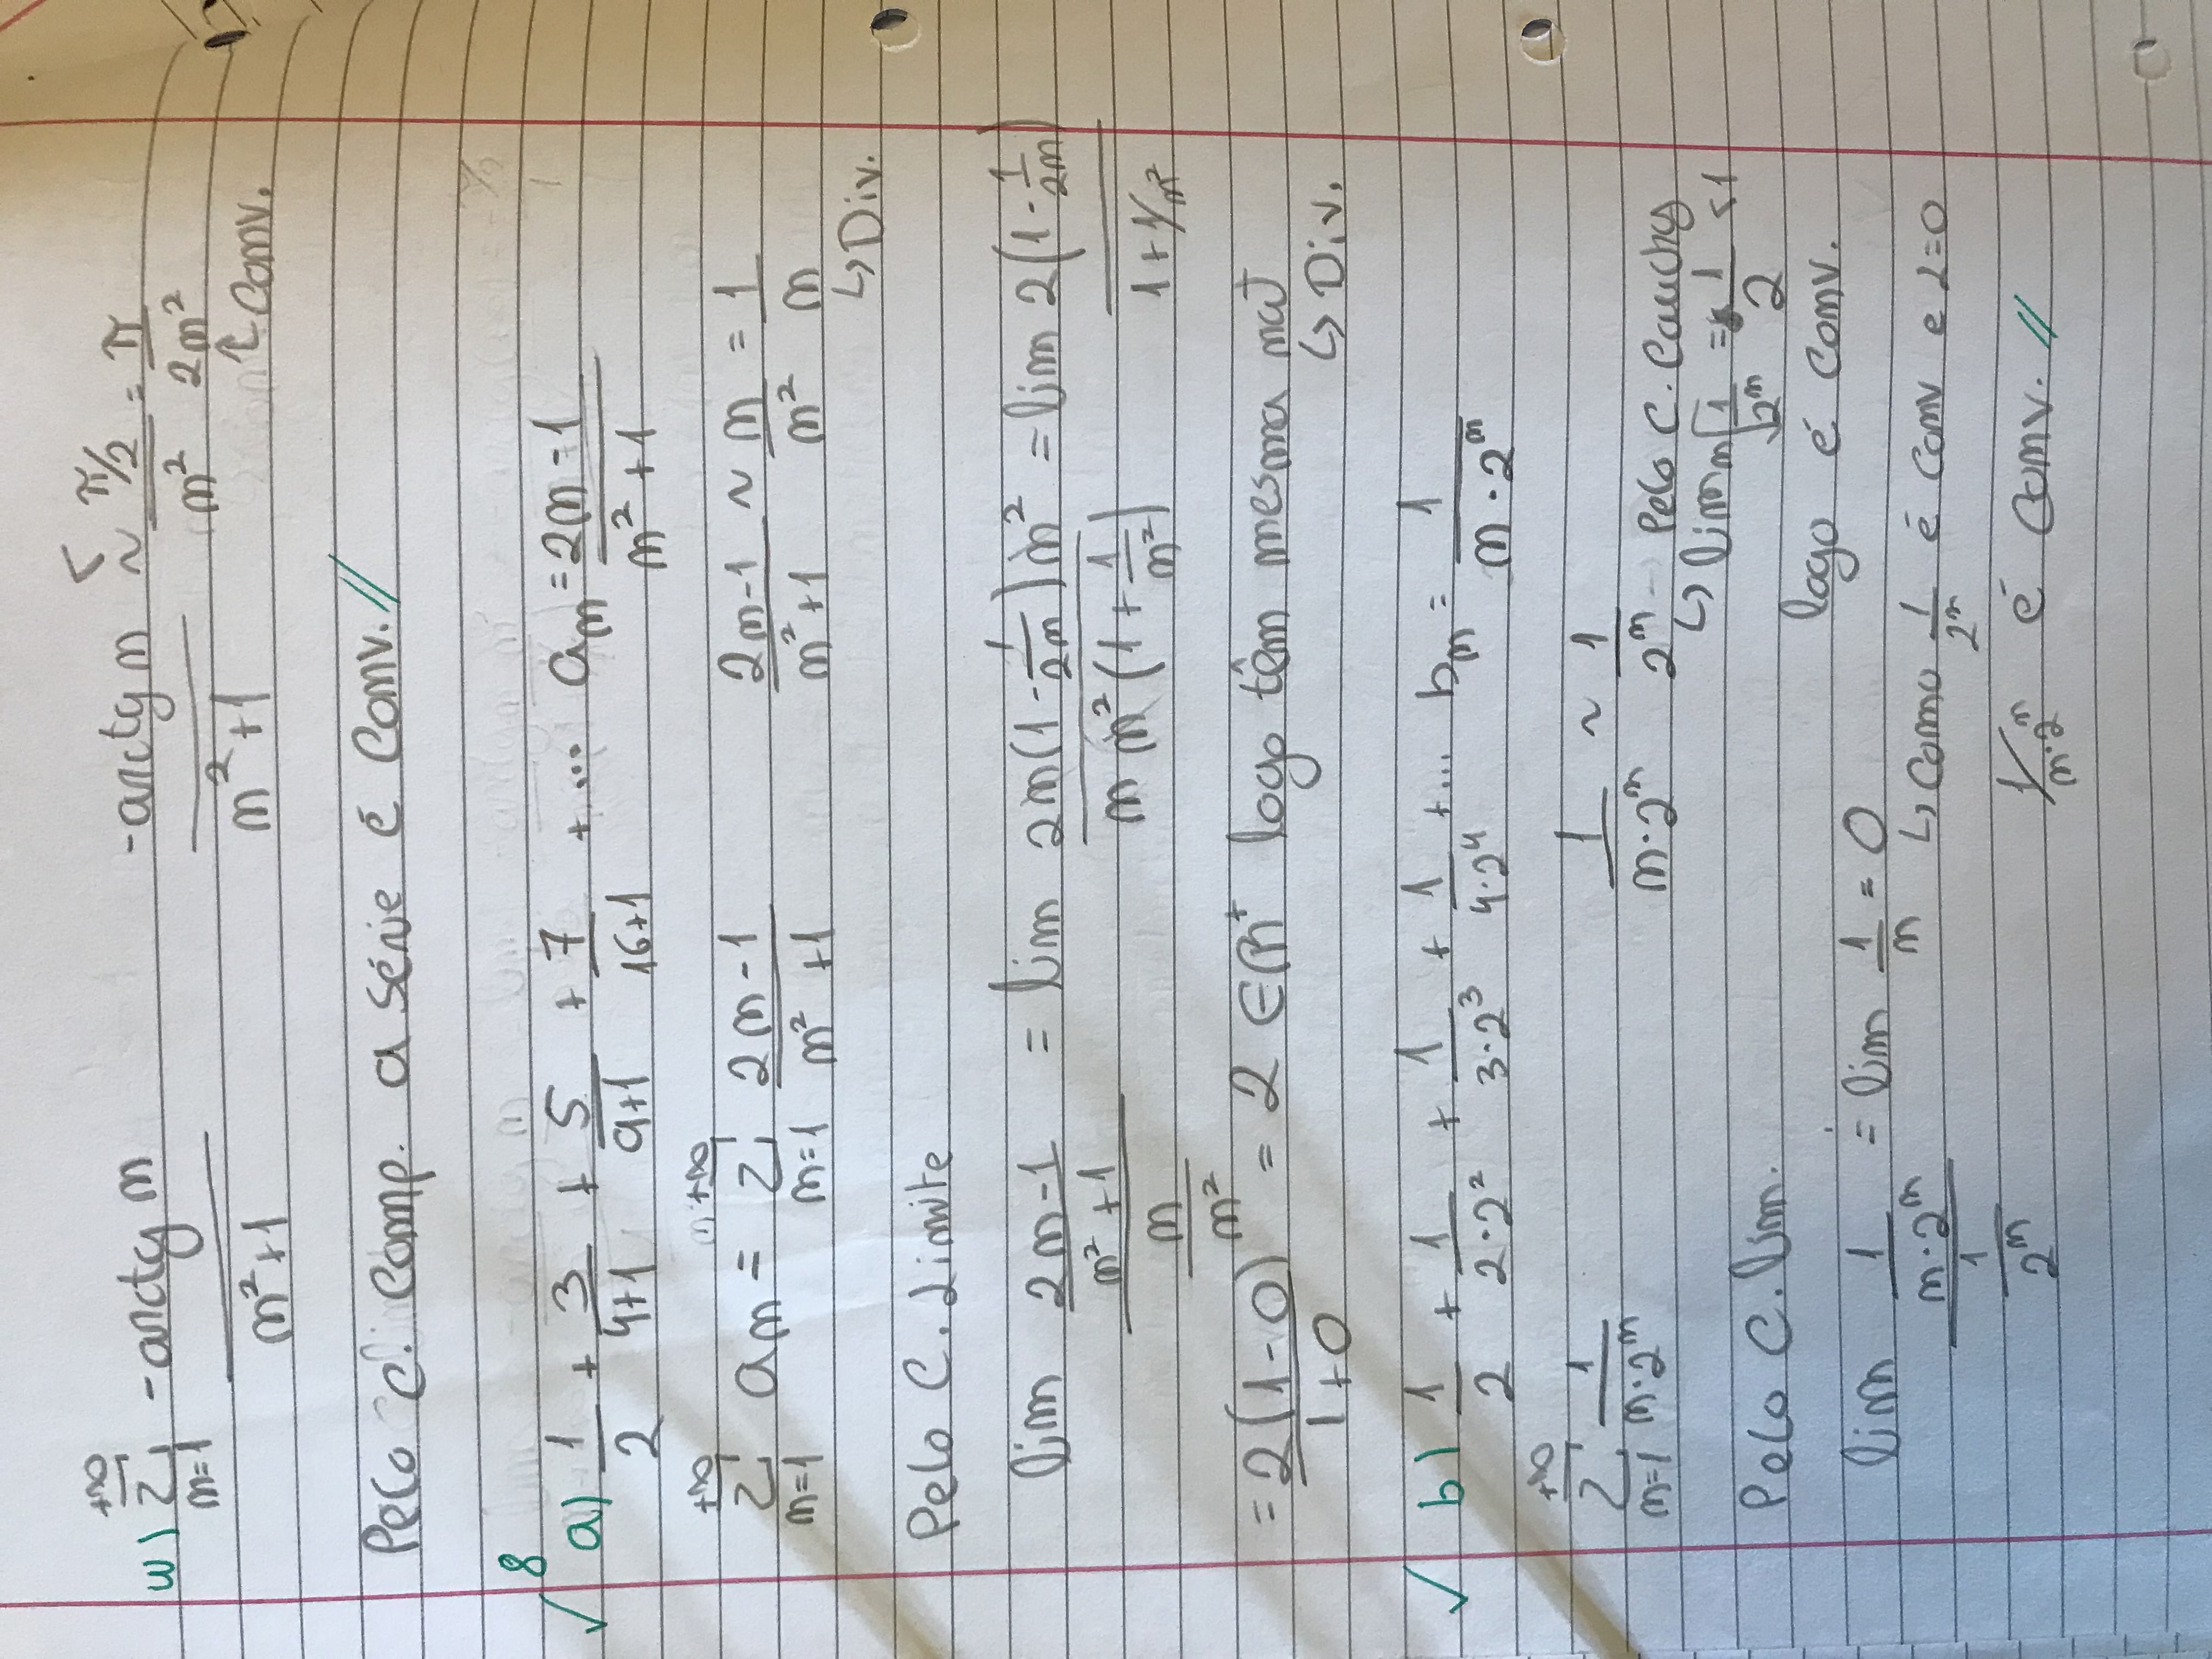 w) +∞ Σ m=1 -arctg m / m²+1    -arctg m / m²+1 <~ π/2 / m² = π / 2m²
↑ Conv.
Pelo C. Comp. a série é Conv. //
8
✓ a) 1/2 + 3/4+1 + 5/9+1 + 7/16+1 + ... am = 2m-1 / m²+1
+∞ Σ m=1 am = +∞ Σ m=1 2m-1 / m²+1    2m-1 / m²+1 ~ m/m² = 1/m
↳ Div.
Pelo C. Limite
lim (2m-1 / m²+1) / (m/m²) = lim 2m(1-1/2m)m² / m m²(1+1/m²) = lim 2(1-1/2m) / 1+1/m²
= 2(1-0) / 1+0 = 2 ∈ ℝ⁺ logo têm mesma nat
↳ Div.
✓ b) 1/2 + 1/2·2² + 1/3·2³ + 1/4·2⁴ +... bm = 1 / m·2ᵐ
+∞ Σ m=1 1 / m·2ᵐ    1 / m·2ᵐ ~ 1/2ᵐ → Pelo C. Cauchy
↳ lim ᵐ√1/2ᵐ = 1/2 <1
Pelo C. lim.
logo é Conv.
lim (1 / m·2ᵐ) / (1/2ᵐ) = lim 1/m = 0
↳ Como 1/2ᵐ é Conv e L=0
1/m·2ᵐ é Conv. //